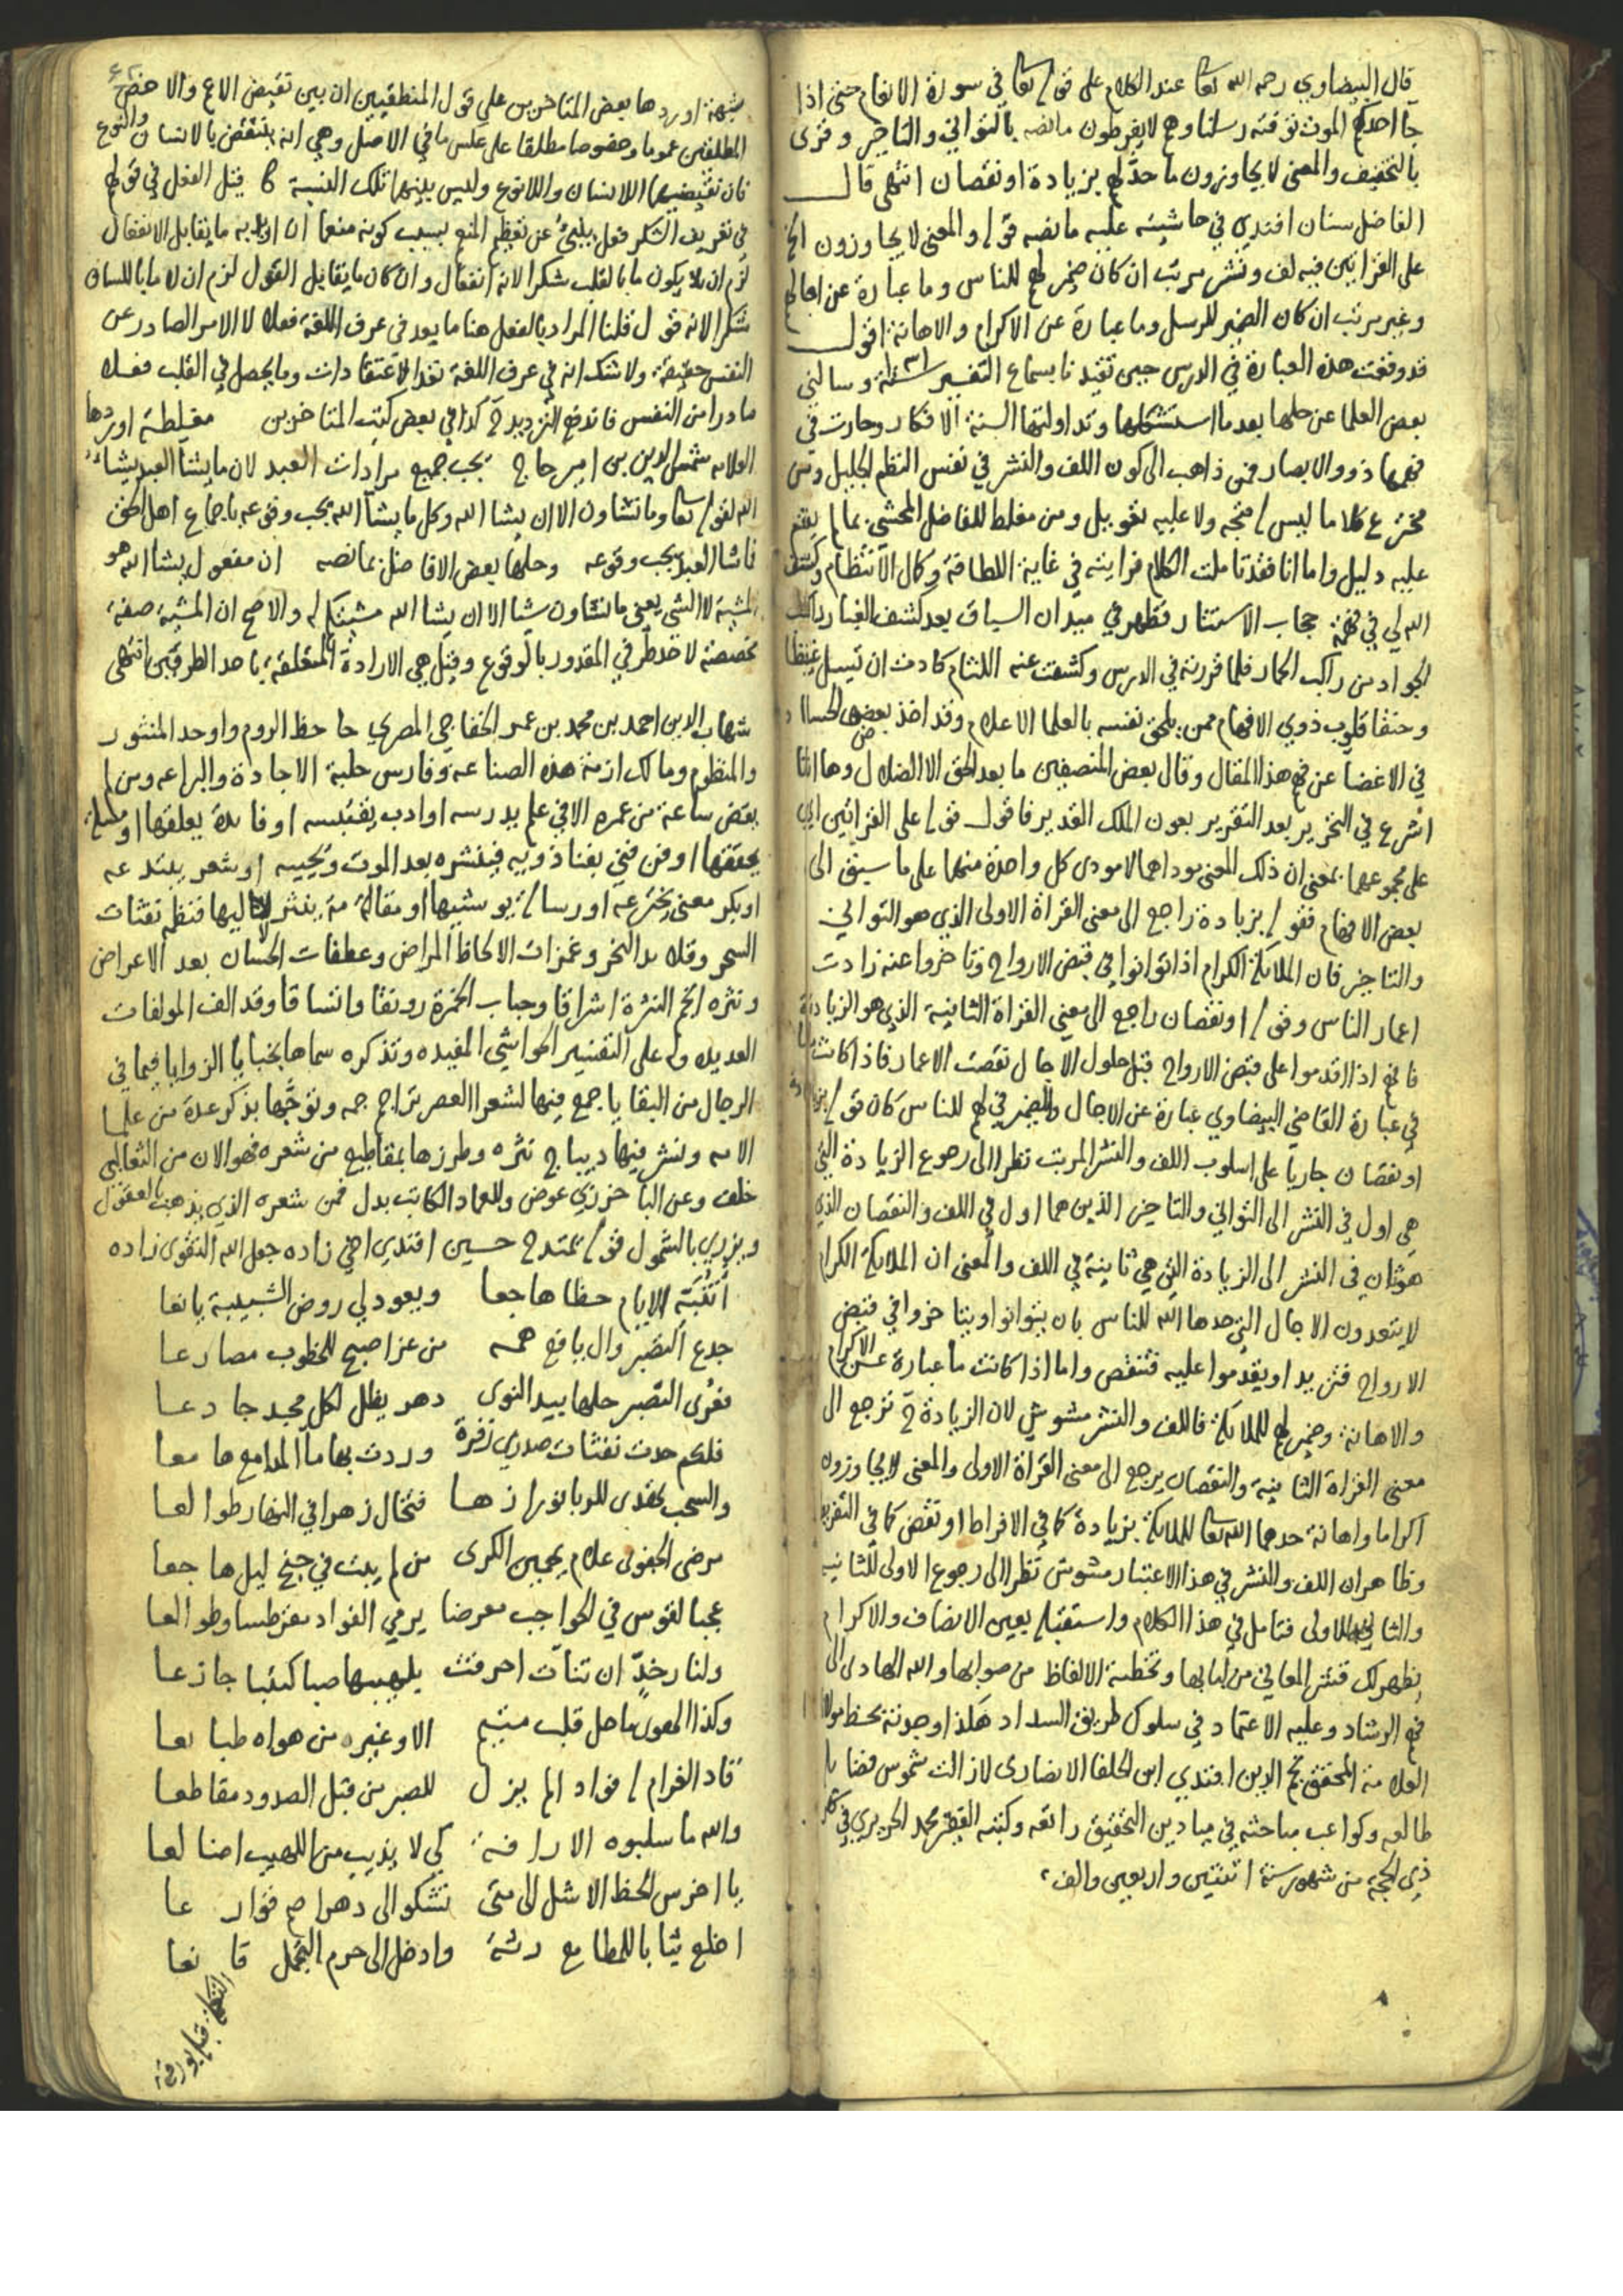 قال البيضاوي رحمه الله تعا عند الكلام على قوله تعا في سورة الانعام حتى اذا
جا احدكم الموت توفته رسلنا وهم لا يفرطون ما نصه بالتواني والتاخير وقرئ
بالتخفيف والمعنى لا يجاوزون ما حد لهم بزيادة او نقصان انتهى قال
الفاضل سنان افندي في حاشيته عليه ما نصه قوله والمعنى لا يجاوزون الخ
على القراتين فيه لف ونشر مرتب ان كان ضمير لهم للناس وما عبارة عن اجالهم
وغير مرتب ان كان الضمير للرسل وما عبارة عن الاكرام والاهانة اقول
قد وقعت هذه العبارة في الدرس حين تقيدنا بسماع التفسير سنة ١٠٣١ وسالني
بعض العلما عن حلها بعد ما استشكلها وتداولتها السنة الافكار وحارت في
فهمها ذوو الابصار فمن ذاهب الى كون اللف والنشر في نفس النظم الجليل ومن
مخترع كلاما ليس له متجه ولا عليه تعويل ومن مغلط للفاضل المحشي بما لم يقم
عليه دليل واما انا فقد تاملت الكلام فرايته في غاية اللطافة وكمال الانتظام وكشف
الله لي في فهمه حجاب الاستتار فظهر في ميدان السباق بعد كشف الغبار راكب
الجواد من راكب الحمار فلما قررته في الدرس وكشفت عنه اللثام كادت ان تسيل غيظا
وحنقا قلوب ذوي الافهام ممن يلحق نفسه بالعلما الاعلام وقد اخذ بعض الحساد
في الاغضا عن فهم هذا المقال وقال بعض المنصفين ما بعد الحق الا الضلال وها انا
اشرع في التحرير بعد التقرير بعون الملك القدير فاقول قوله على القراتين اي
على مجموعهما بمعنى ان ذلك المعنى موداهما لا مودى كل واحدة منهما على ما سبق الى
بعض الافهام فقوله بزيادة راجع الى معنى القراة الاولى الذي هو التواني
والتاخير فان الملائكة الكرام اذا توانوا في قبض الارواح وتاخروا عنه زادت
اعمار الناس وقوله او نقصان راجع الى معنى القراة الثانية الذي هو الزيادة
فانهم اذا اقدموا على قبض الارواح قبل حلول الاجال نقصت الاعمار فاذا كانت ما
في عبارة القاضي البيضاوي عبارة عن الاجال والضمير في لهم للناس كان قوله بزيادة
او نقصان جاريا على اسلوب اللف والنشر المرتب نظرا الى رجوع الزيادة التي
هي اول في النشر الى التواني والتاخير الذين هما اول في اللف والنقصان الذي
هو ثان في النشر الى الزيادة التي هي ثانية في اللف والمعنى ان الملائكة الكرام
لا يتعدون الاجال التي حدها الله للناس بان يتوانوا ويتاخروا في قبض
الارواح فتزيد او يقدموا عليه فتنقص واما اذا كانت ما عبارة عن الاكرام
والاهانة وضمير لهم للملائكة فاللف والنشر مشوش لان الزيادة ح ترجع الى
معنى القراة الثانية والنقصان يرجع الى معنى القراة الاولى والمعنى لا يجاوزون
اكراما واهانة حدهما الله تعا للملائكة بزيادة كما في الافراط او نقص كما في التفريط
وظاهر ان اللف والنشر في هذا الاعتبار مشوش نظرا الى رجوع الاولى للثانية
والثاني للاولى فتامل في هذا الكلام واستقبله بعين الانصاف والاكرام
يظهر لك قشر المعاني من لبابها وتخطية الالفاظ من صوابها والله الهادي الى
فهم الرشاد وعليه الاعتماد في سلوك طريق السداد هكذا وجدته بخط مولانا
العلامة المحقق نجم الدين افندي ابن الحلفا الانصاري لا زالت شموس فضايله
طالعه وكواعب مباحثه في ميادين التحقيق راتعه وكتبه الفقير محمد الحريري في
ذي الحجة من شهور سنة اثنتين واربعين والف
شبهة اوردها بعض المتاخرين على قول المنطقيين ان بين نقيض الاعم والاخص
المطلقين عموما وخصوصا مطلقا على عكس ما في الاصل وهي انه ينتقض بالانسان والنوع
فان نقيضيهما اللا انسان واللا نوع وليس بينهما تلك النسبة قيل الفعل في قولهم
في تعريف الشكر فعل ينبئ عن تعظيم المنعم بسبب كونه منعما ان اريد به ما يقابل الانفعال
لزم ان لا يكون ما بالقلب شكرا لانه انفعال وان كان ما يقابل القول لزم ان لا ما باللسان
شكرا لانه قول قلنا المراد بالفعل هنا ما يعد في عرف اللغة فعلا لا الامر الصادر عن
النفس حقيقة ولا شك انه في عرف اللغة تعد الاعتقادات وما يحصل في القلب فعلا
صادرا من النفس فاندفع الترديد ح كذا في بعض كتب المتاخرين مغلطة اوردها
العلامه شمس الدين بن امير حاج يجب جميع مرادات العبد لان ما يشا العبد يشاء
الله لقوله تعا وما تشاون الا ان يشا الله وكل ما يشا الله يجب وقوعه باجماع اهل الحق
فاشا العبد يجب وقوعه وحلها بعض الافاضل بما نصه ان مفعول يشا الله هو
المشية لا الشي يعني ما تشاون شيا الا ان يشا الله مشيتكم له والاصح ان المشية صفة
مخصصة لاحد طرفي المقدور بالوقوع وقيل هي الارادة المتعلقة باحد الطرفين انتهى
شهاب الدين احمد بن محمد بن عمر الخفاجي المصري حافظ الروم واوحد المنثور
والمنظوم ومالك ازمة هذه الصناعه وفارس حلبة الاجادة والبراعه ومن لم
يمض ساعة من عمره الا في علم يدرسه او ادب يقتبسه او فائدة يعلقها او مسئلة
يحققها او فن فني بفنا ذويه فينشره بعد الموت ويحييه او شعر يبتدعه
او بكر معنى يخترعه او رسالة يوشيها او مقالة ينثر لآليها فنظمه نفثات
السحر وقلائد النحر وغمزات الالحاظ المراض وعطفات الحسان بعد الاعراض
ونثره انجم النثرة اشراقا وحباب الخمرة رونقا واتساقا وقد الف المولفات
العديده وله على التفسير الحواشي المفيده وتذكره سماها بخبايا الزوايا فيما في
الرجال من البقايا جمع فيها لشعرا العصر تراجم جمه وتوجها بذكر عدة من علما
الامه ونشر فيها ديباج نثره وطرزها بمقاطيع من شعره فهو الان من الثعالبي
خلف وعن الباخرزي عوض وللعماد الكاتب بدل فمن شعره الذي يذهب العقول
ويزري بالشمول قوله يمتدح حسين افندي اخي زاده جعل الله التقوى زاده
اتنبه الايام حظا هاجعا ويعود لي روض الشبيبة يانعا
جدع التصبر وال يافع همه من عزا صبح للخطوب مصارعا
فعرى التصبر حلها بيد النوى دهر يظل لكل مجد جادعا
فلكم حدت نفثات صدري زفرة وردت بها ما المدامع ها معا
والسحب تفدى للربا نوراز ها فتخال زهرا في النهار طوالعا
مرضى الجفون علام يحمين الكرى من لم يبت في جنح ليل هاجعا
عجبا لقوس في الحواجب معرضا يرمي الفواد مقرطسا وطوالعا
ولنار خد ان تنات احرقت يلهيبها صبا كئيبا جازعا
وكذا الهوى ما حل قلب متيم الا وغيره من هواه طبائعا
قاد الغرام له فواد الم يزل للصبر من قبل الصدود مقاطعا
والله ما سلبوه الا رافة كي لا يذيب من اللهيب اضالعا
يا اخرس الحظ الاشل الى متى تشكو الى دهر اصم قوارعا
اخلع ثيابا للمطامع رثة وادخل الى حرم التجمل قانعا